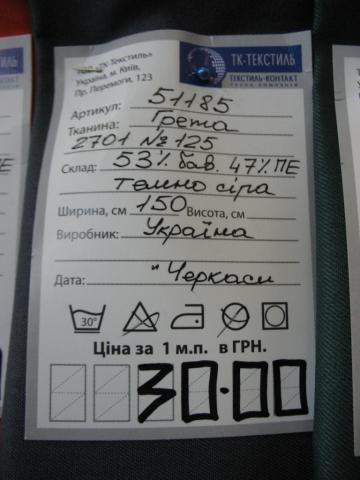 «ТК-Текстиль»
Україна, м. Київ,
Пр. Перемоги, 123
ТК-ТЕКСТИЛЬ
ТЕКСТИЛЬ-КОНТАКТ
Артикул: 51185
Тканина: Грета
2701 №125
Склад: 53% бав. 47% ПЕ
темно сіра
Ширина, см 150 Висота, см
Виробник: Україна
"Черкаси
Дата:
30°
Ціна за 1 м.п. в ГРН.
30.00
ПЕ